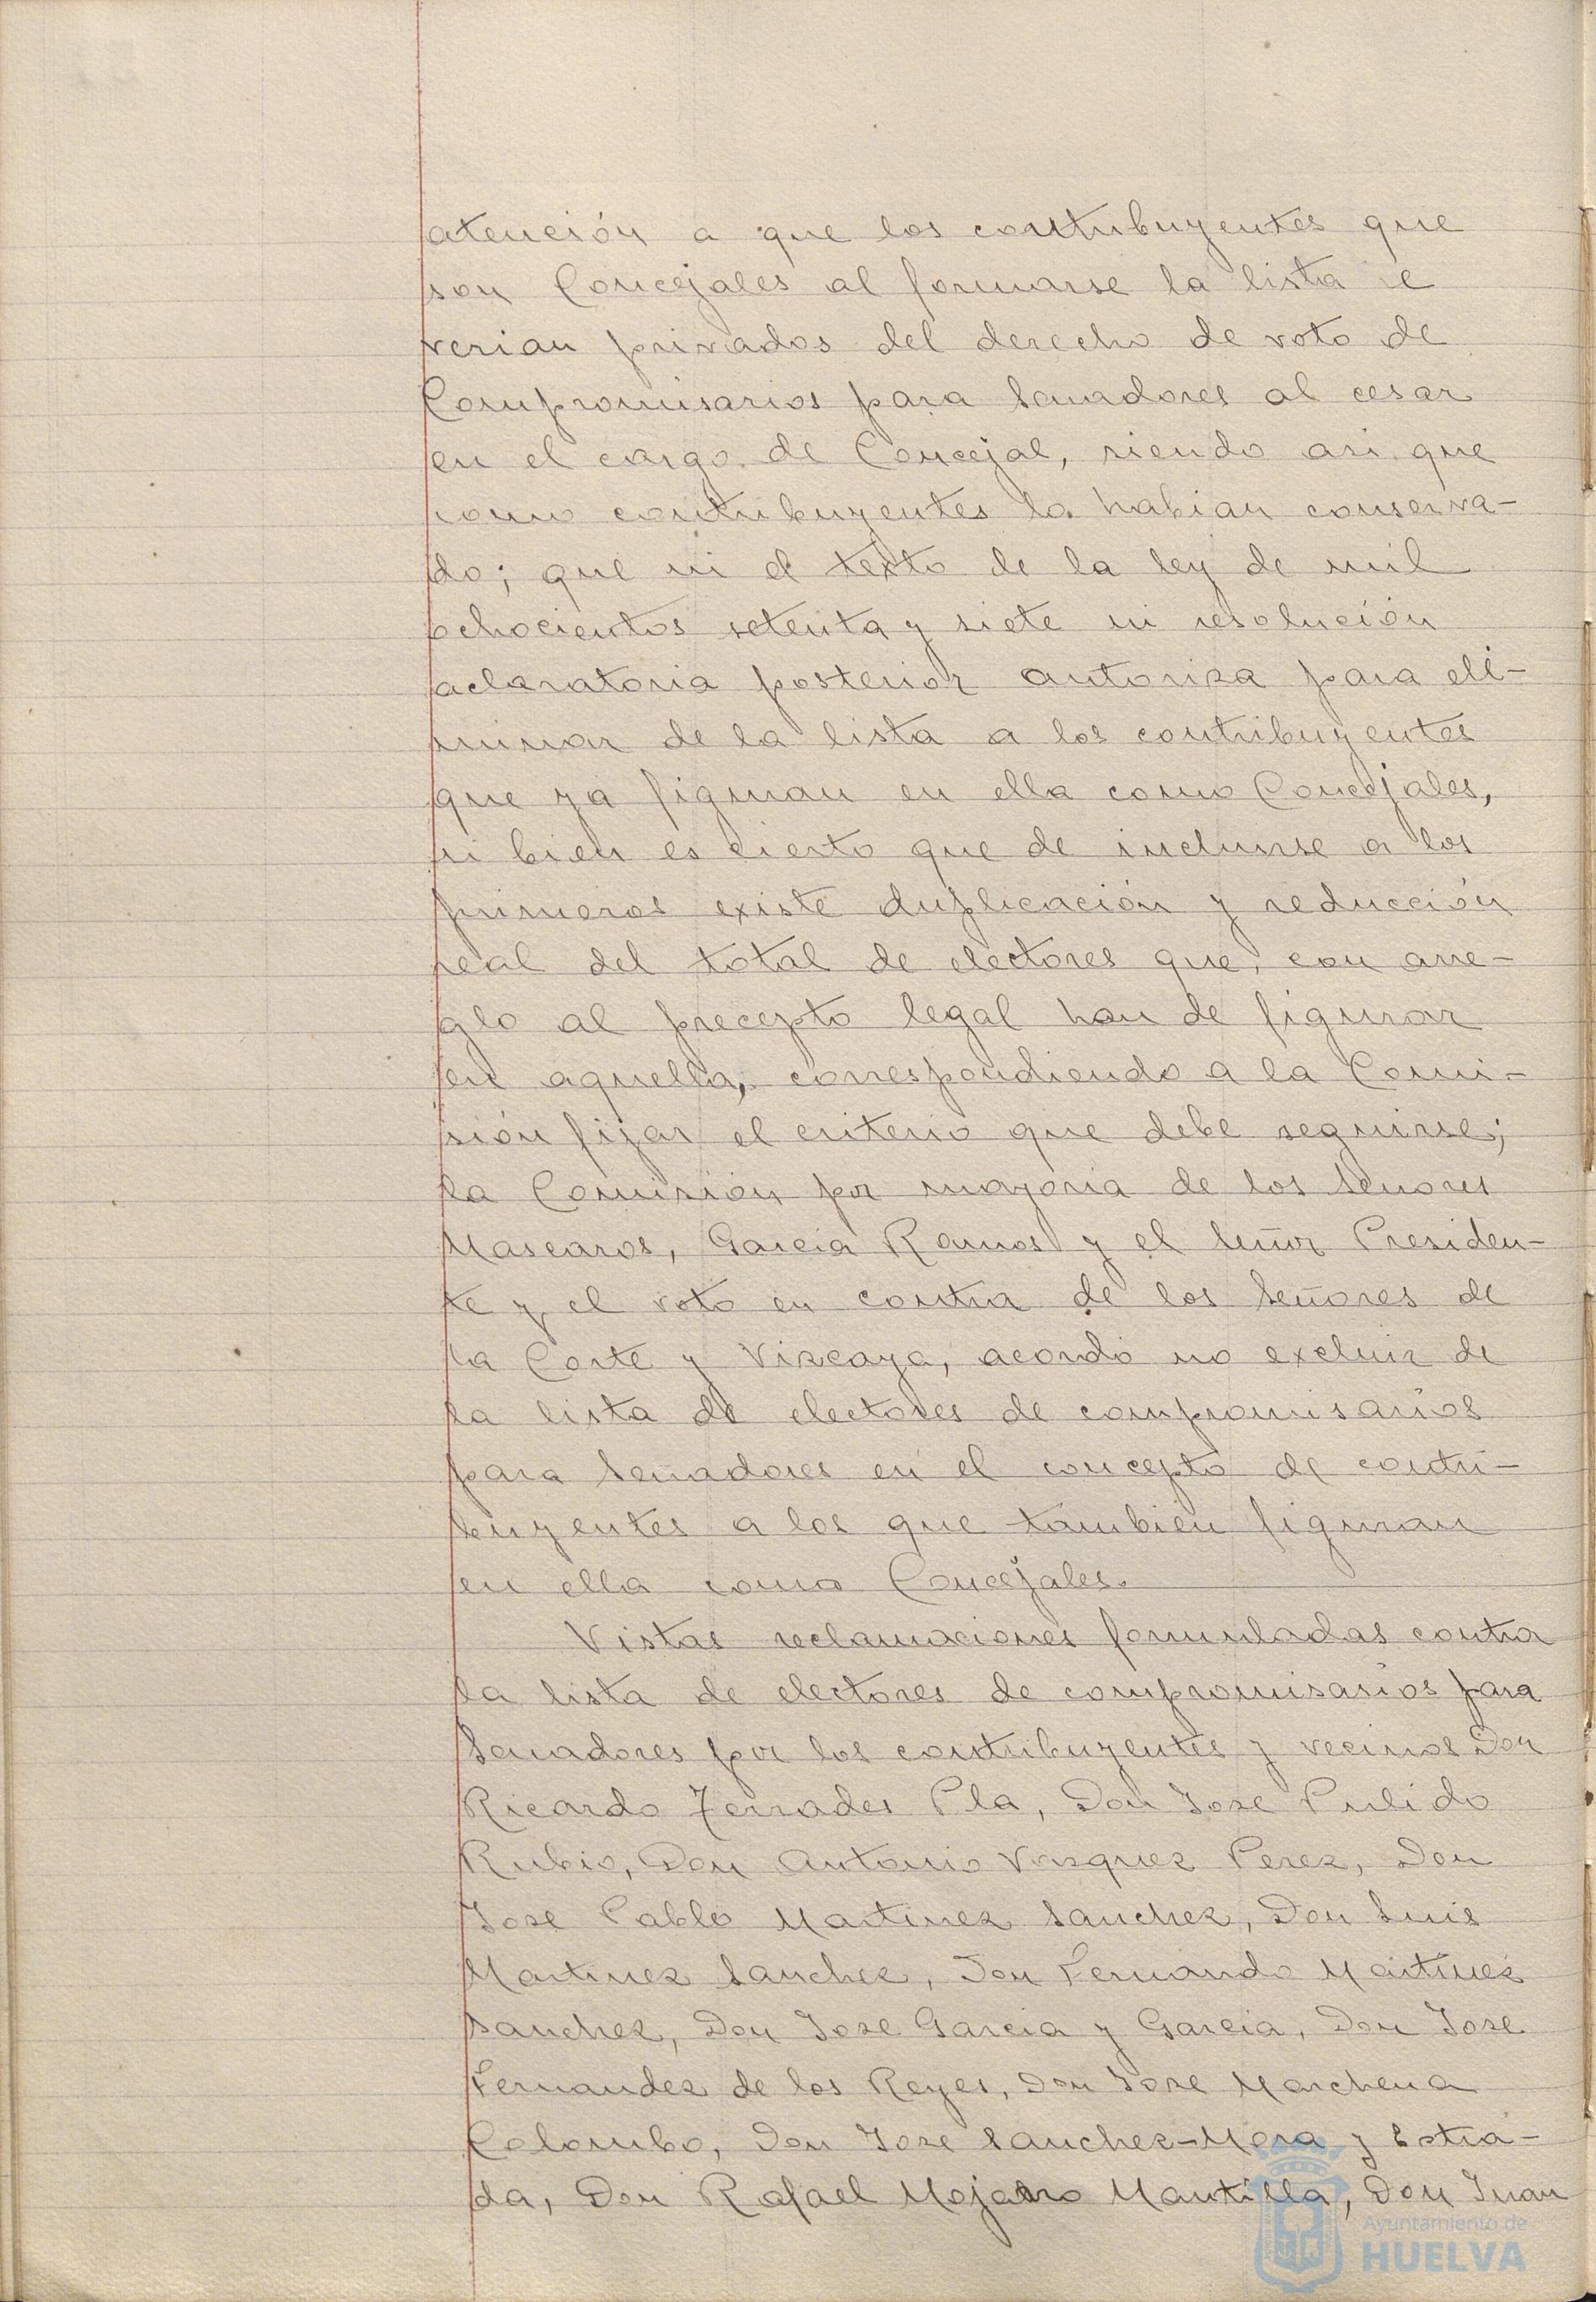 atención a que los contribuyentes que
son Concejales al formarse la lista se
verian privados del derecho de voto de
Compromisarios para Senadores al cesar
en el cargo de Concejal, siendo asi que
como contribuyentes lo habian conserva-
do; que ni el texto de la ley de mil
ochocientos setenta y siete ni resolución
aclaratoria posterior autoriza para eli-
minar de la lista a los contribuyentes
que ya figuran en ella como Concejales,
si bien es cierto que de incluirse a los
primeros existe duplicación y reducción
real del total de electores que, con arre-
glo al precepto legal han de figurar
en aquella, correspondiendo a la Comi-
sión fijar el criterio que debe seguirse;
la Comision por mayoria de los Señores
Mascaros, Garcia Ramos y el Señor Presiden-
te y el voto en contra de los Señores de
la Corte y Vizcaya, acordó no excluir de
la lista de electores de compromisarios
para Senadores en el concepto de contri-
buyentes a los que tambien figuran
en ella como Concejales.
Vistas reclamaciones formuladas contra
la lista de electores de compromisarios para
Senadores por los contribuyentes y vecinos Don
Ricardo Terrades Pla, Don Jose Pulido
Rubio, Don Antonio Vazquez Perez, Don
Jose Pablo Martinez Sanchez, Don Luis
Martinez Sanchez, Don Fernando Martinez
Sanchez, Don Jose Garcia y Garcia, Don Jose
Fernandez de los Reyes, Don Jose Marchena
Colombo, Don Jose Sanchez-Mora y Estra-
da, Don Rafael Mojarro Mantilla, Don Juan
Ayuntamiento de
HUELVA